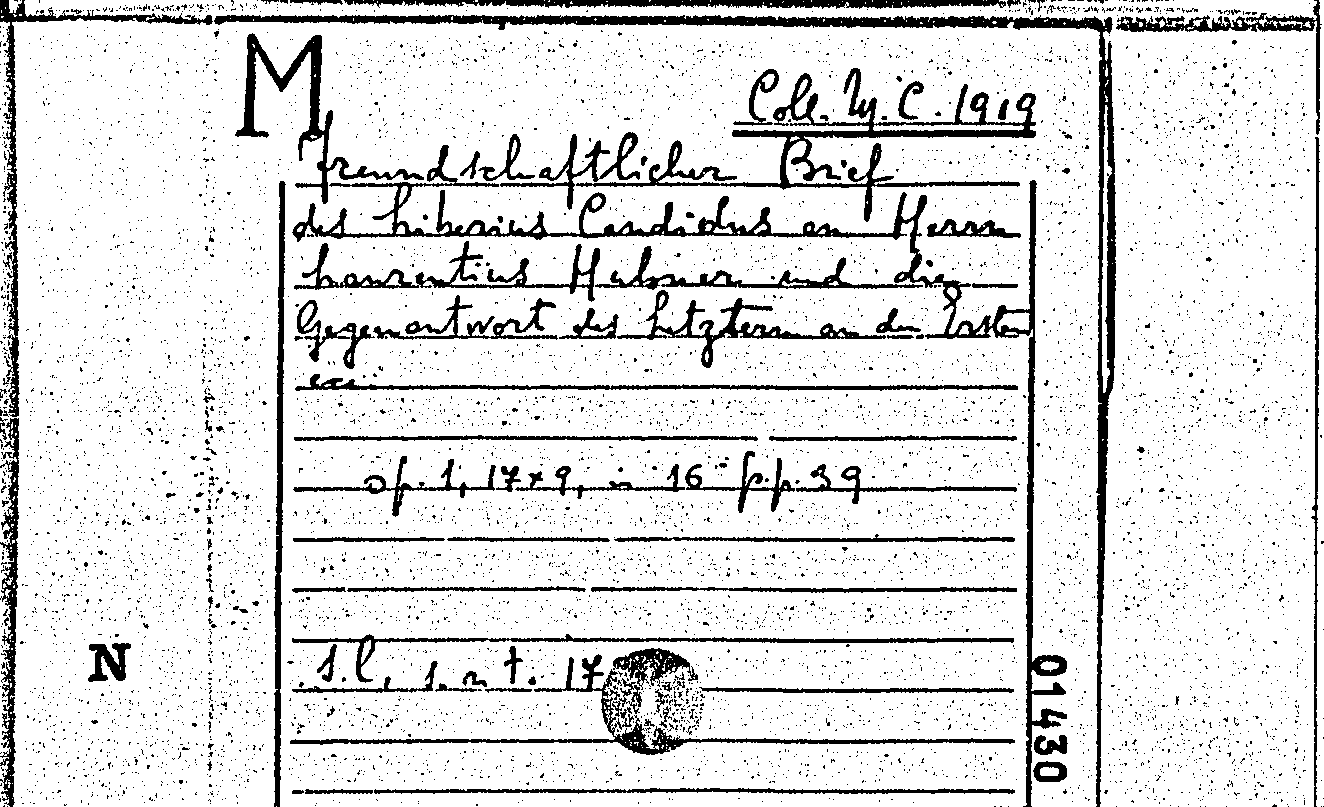 M
Coll. M. C. 1919
Freundschaftlicher Brief
des Liberius Candidus an Herrn
Laurentius Hubner und die
Gegenantwort des Letztern an den Ersten
op. 1, 17×9, in 16 pp. 39
N
s.l., s. n t. 17
01430